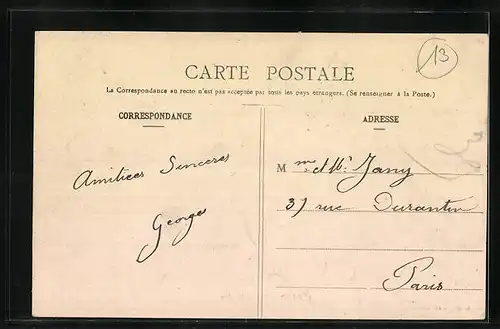 13
CARTE POSTALE
La Correspondance au recto n'est pas acceptée par tous les pays étrangers. (Se renseigner à la Poste.)
CORRESPONDANCE
ADRESSE
Amitiées Sincères
Georges
Mme & Mr Jany
37 rue Durantin
Paris